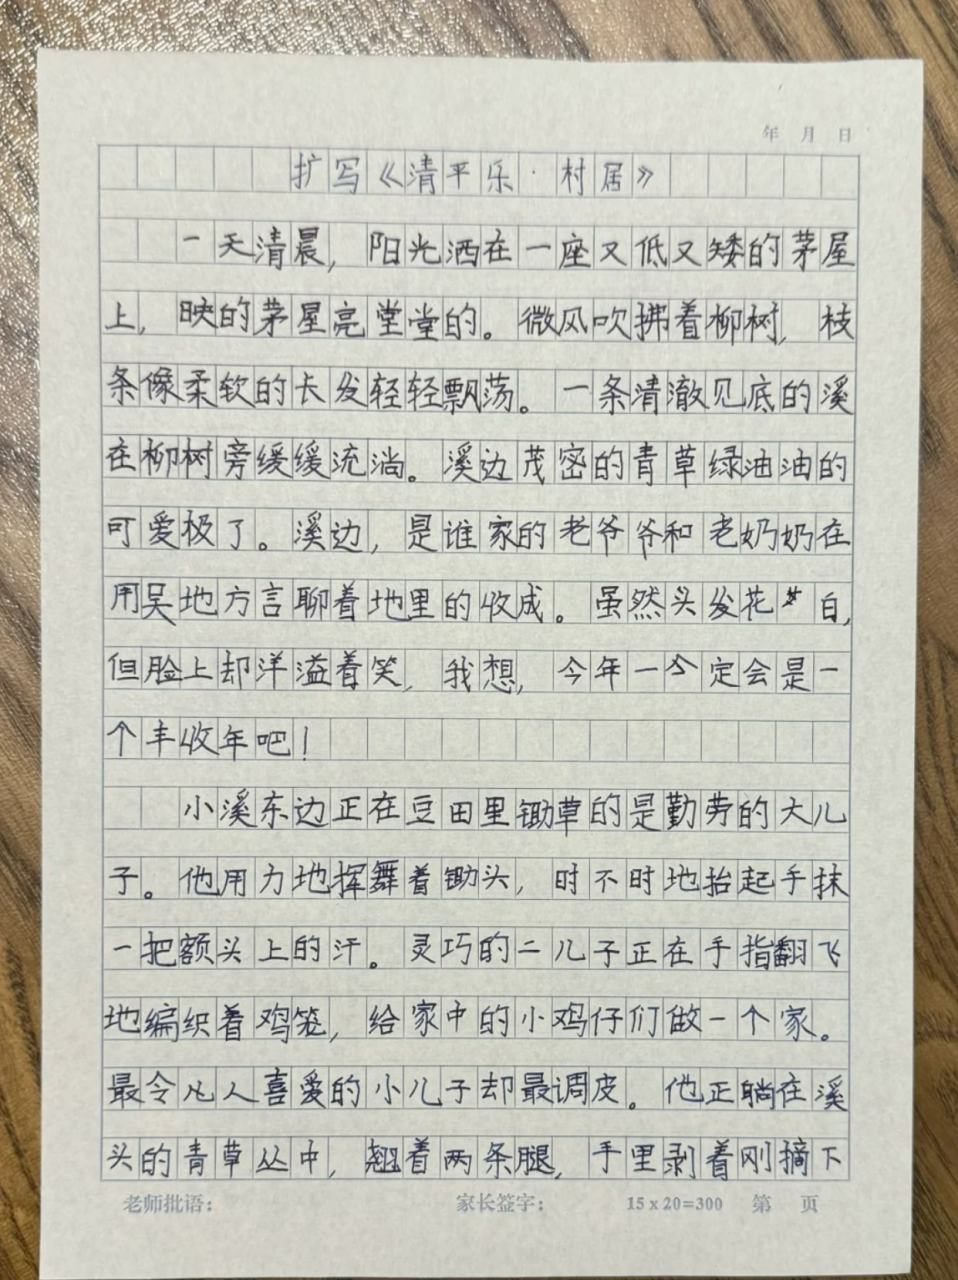 年 月 日
扩写《清平乐·村居》
一天清晨，阳光洒在一座又低又矮的茅屋
上，映的茅屋亮堂堂的。微风吹拂着柳树，枝
条像柔软的长发轻轻飘荡。一条清澈见底的溪
在柳树旁缓缓流淌。溪边茂密的青草绿油油的
可爱极了。溪边，是谁家的老爷爷和老奶奶在
用吴地方言聊着地里的收成。虽然头发花白，
但脸上却洋溢着笑，我想，今年一定会是一
个丰收年吧！
小溪东边正在豆田里锄草的是勤劳的大儿
子。他用力地挥舞着锄头，时不时地抬起手抹
一把额头上的汗。灵巧的二儿子正在手指翻飞
地编织着鸡笼，给家中的小鸡仔们做一个家。
最令人喜爱的小儿子却最调皮。他正躺在溪
头的青草丛中，翘着两条腿，手里剥着刚摘下
老师批语： 家长签字： 15x20=300 第 页